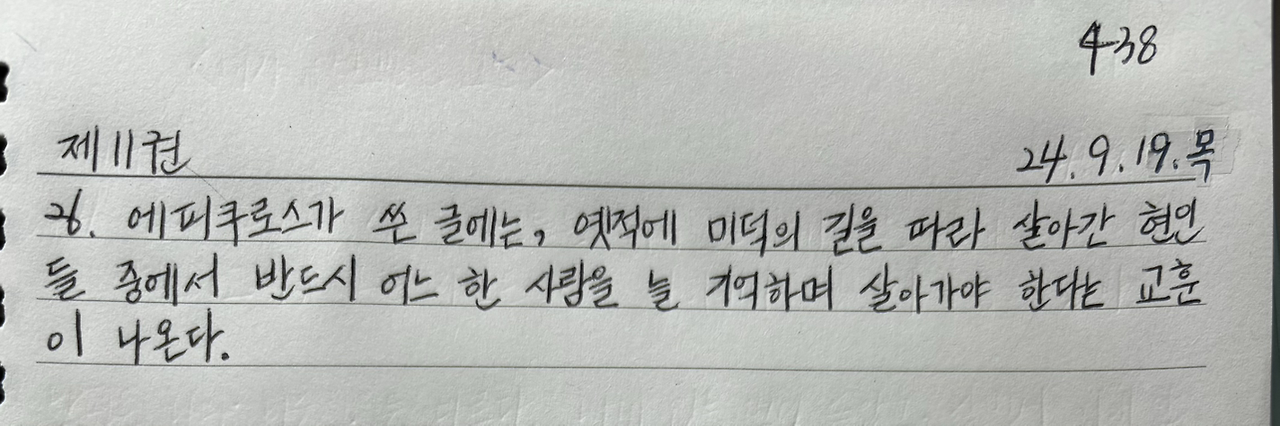 438
제11권 24.9.19.목
26. 에피쿠로스가 쓴 글에는, 옛적에 미덕의 길을 따라 살아간 현인
들 중에서 반드시 어느 한 사람을 늘 기억하며 살아가야 한다는 교훈
이 나온다.